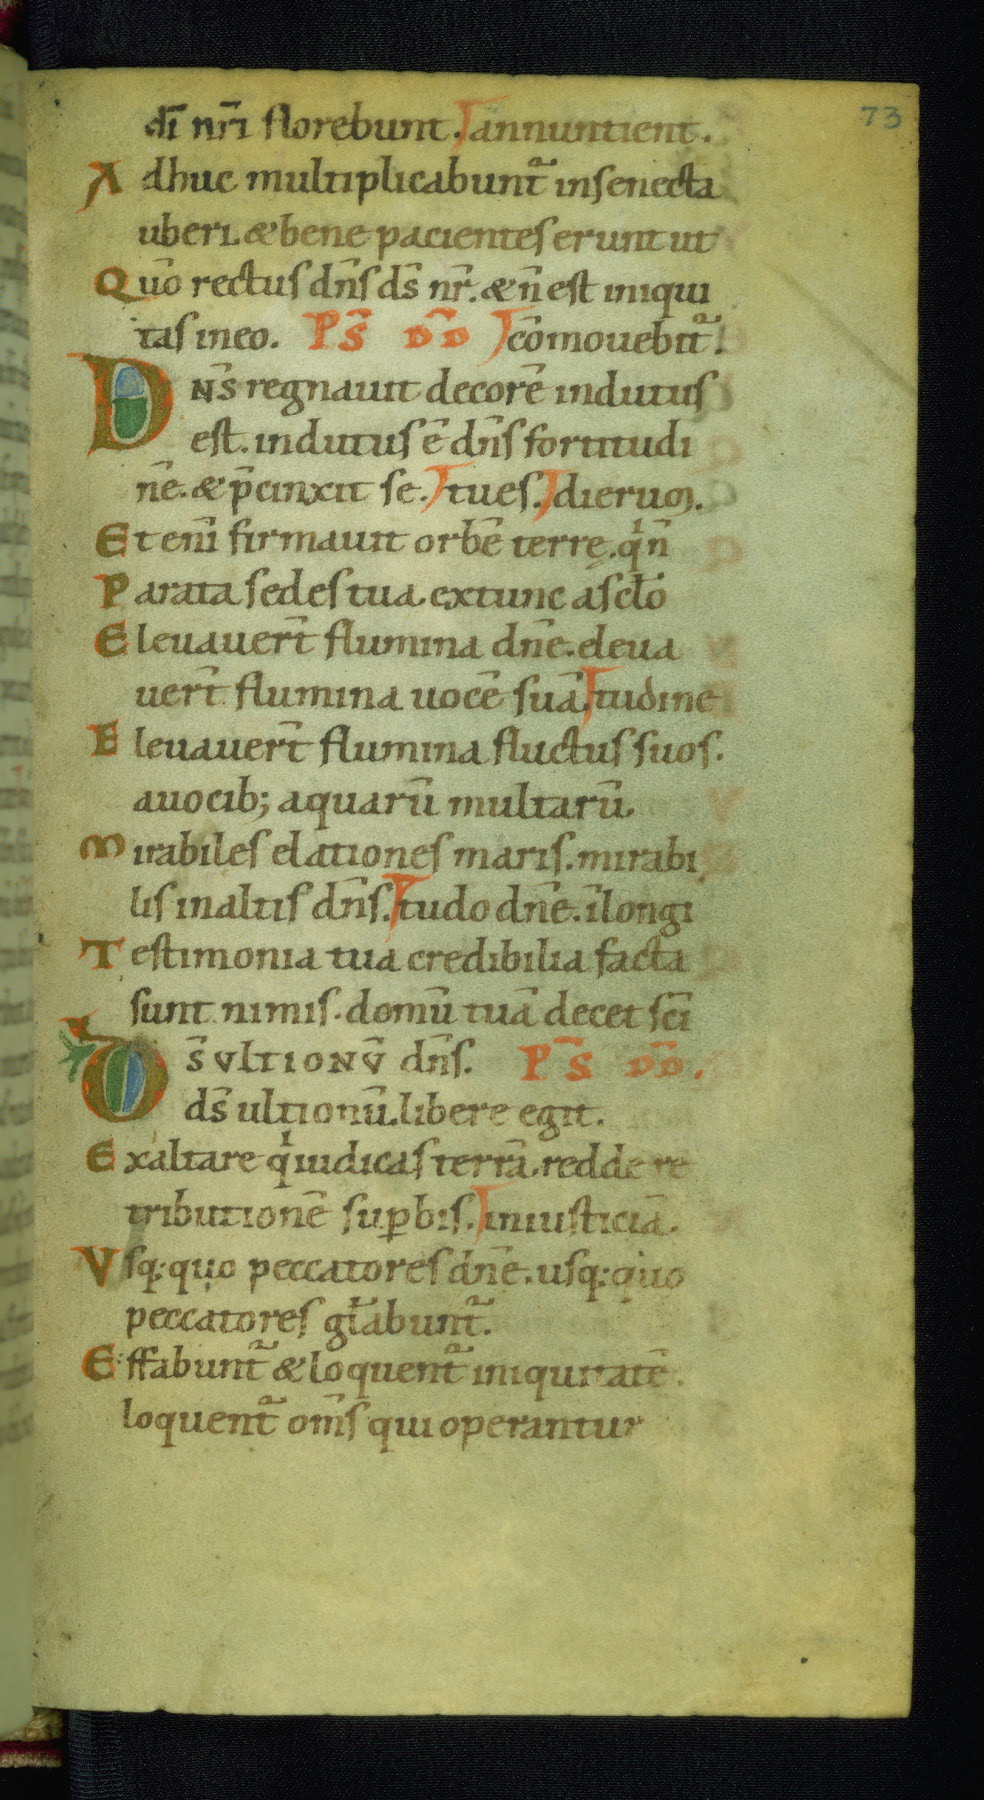 73
dī nr̄i florebunt. annuntient.
Adhuc multiplicabunt᷑ insenecta
uberi. & bene pacientes erunt ut
Quō rectus dn̄s ds̄ nr̄. & n̄ est iniqui
tas ineo. Ps̄ DD̄ cōmouebit᷑.
DNS̄ regnauit decorē indutus
est. indutus ē dn̄s fortitudi
nē. & p̄cinxit se. tues. dierum.
Et eni̅ firmauit orbē terrę. qi n̄
Parata sedes tua extunc asclo̅
Eleuauer̄t flumina dn̄e. eleua
uer̄t flumina uocē suā. tudine
Eleuauer̄t flumina fluctus suos.
auocib; aquarū multarū
Mirabiles elationes maris. mirabi
lis inaltis dn̄s. tudo dn̄e. īlongi
Testimonia tua credibilia facta
sunt nimis. domū tuā decet scī
DS̄ VLTIONV̄ dn̄s. Ps̄ DD̄.
ds̄ ultionū libere egit.
Exaltare qi iudicas terrā. redde re
tributionē suꝑbis. iniusticiā.
Vsq: quo peccatores dn̄e. usq: quo
peccatores gl̄abunt᷑.
Effabunt᷑ & loquent᷑ iniquitatē.
loquent᷑ om̄s qui operantur